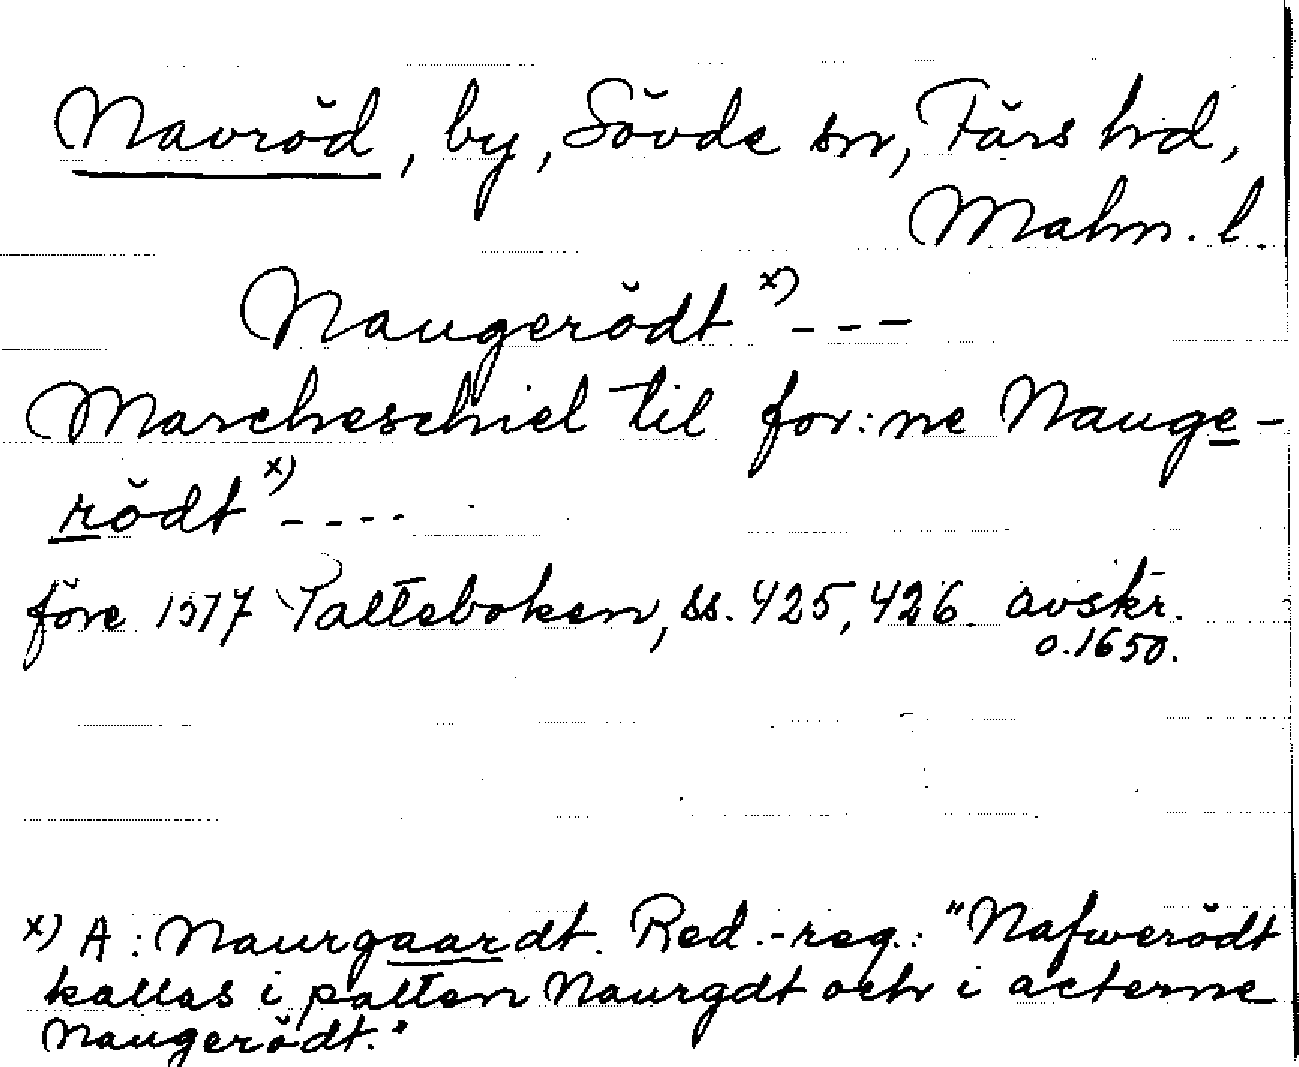 Navröd, by, Sövde sn, Färs hd,
Malm. l.
Naugerödt x) - - -
Marcheschiel til for:ne Nauge-
rödt x) - - - -
före 1577 Palteboken, ss. 425, 426. avskr.
o. 1650.
x) A: Naurgaardt. Red.-reg.: "Nafwerödt
kallas i palten Naurgdt och i acterne
Naugerödt."